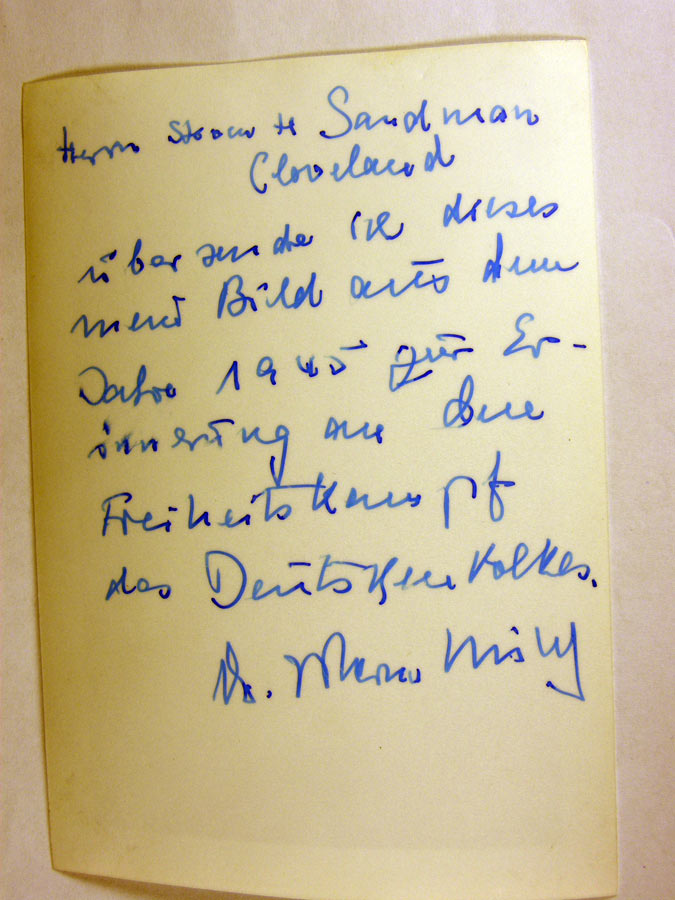 Herrn Sandman
Cleveland
übersende ich dieses
mein Bild aus dem
Jahre 1945 zur Er-
innerung an den
Freiheitskampf
des Deutschen Volkes.
Dr. Werner